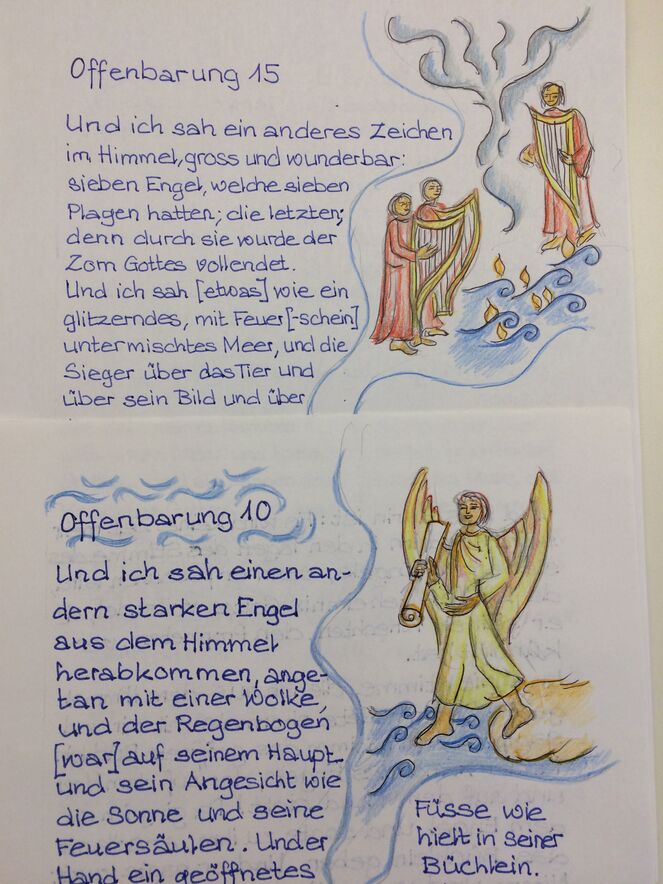 Offenbarung 15
Und ich sah ein anderes Zeichen
im Himmel, gross und wunderbar:
sieben Engel, welche sieben
Plagen hatten; die letzten;
denn durch sie wurde der
Zorn Gottes vollendet.
Und ich sah [etwas] wie ein
glitzerndes, mit Feuer[-schein]
untermischtes Meer, und die
Sieger über das Tier und
über sein Bild und über
Offenbarung 10
Und ich sah einen an-
dern starken Engel
aus dem Himmel
herabkommen, ange-
tan mit einer Wolke,
und der Regenbogen
[war] auf seinem Haupt
und sein Angesicht wie
die Sonne und seine
Feuersäulen. Und er
Hand ein geöffnetes
Füsse wie
hielt in seiner
Büchlein.